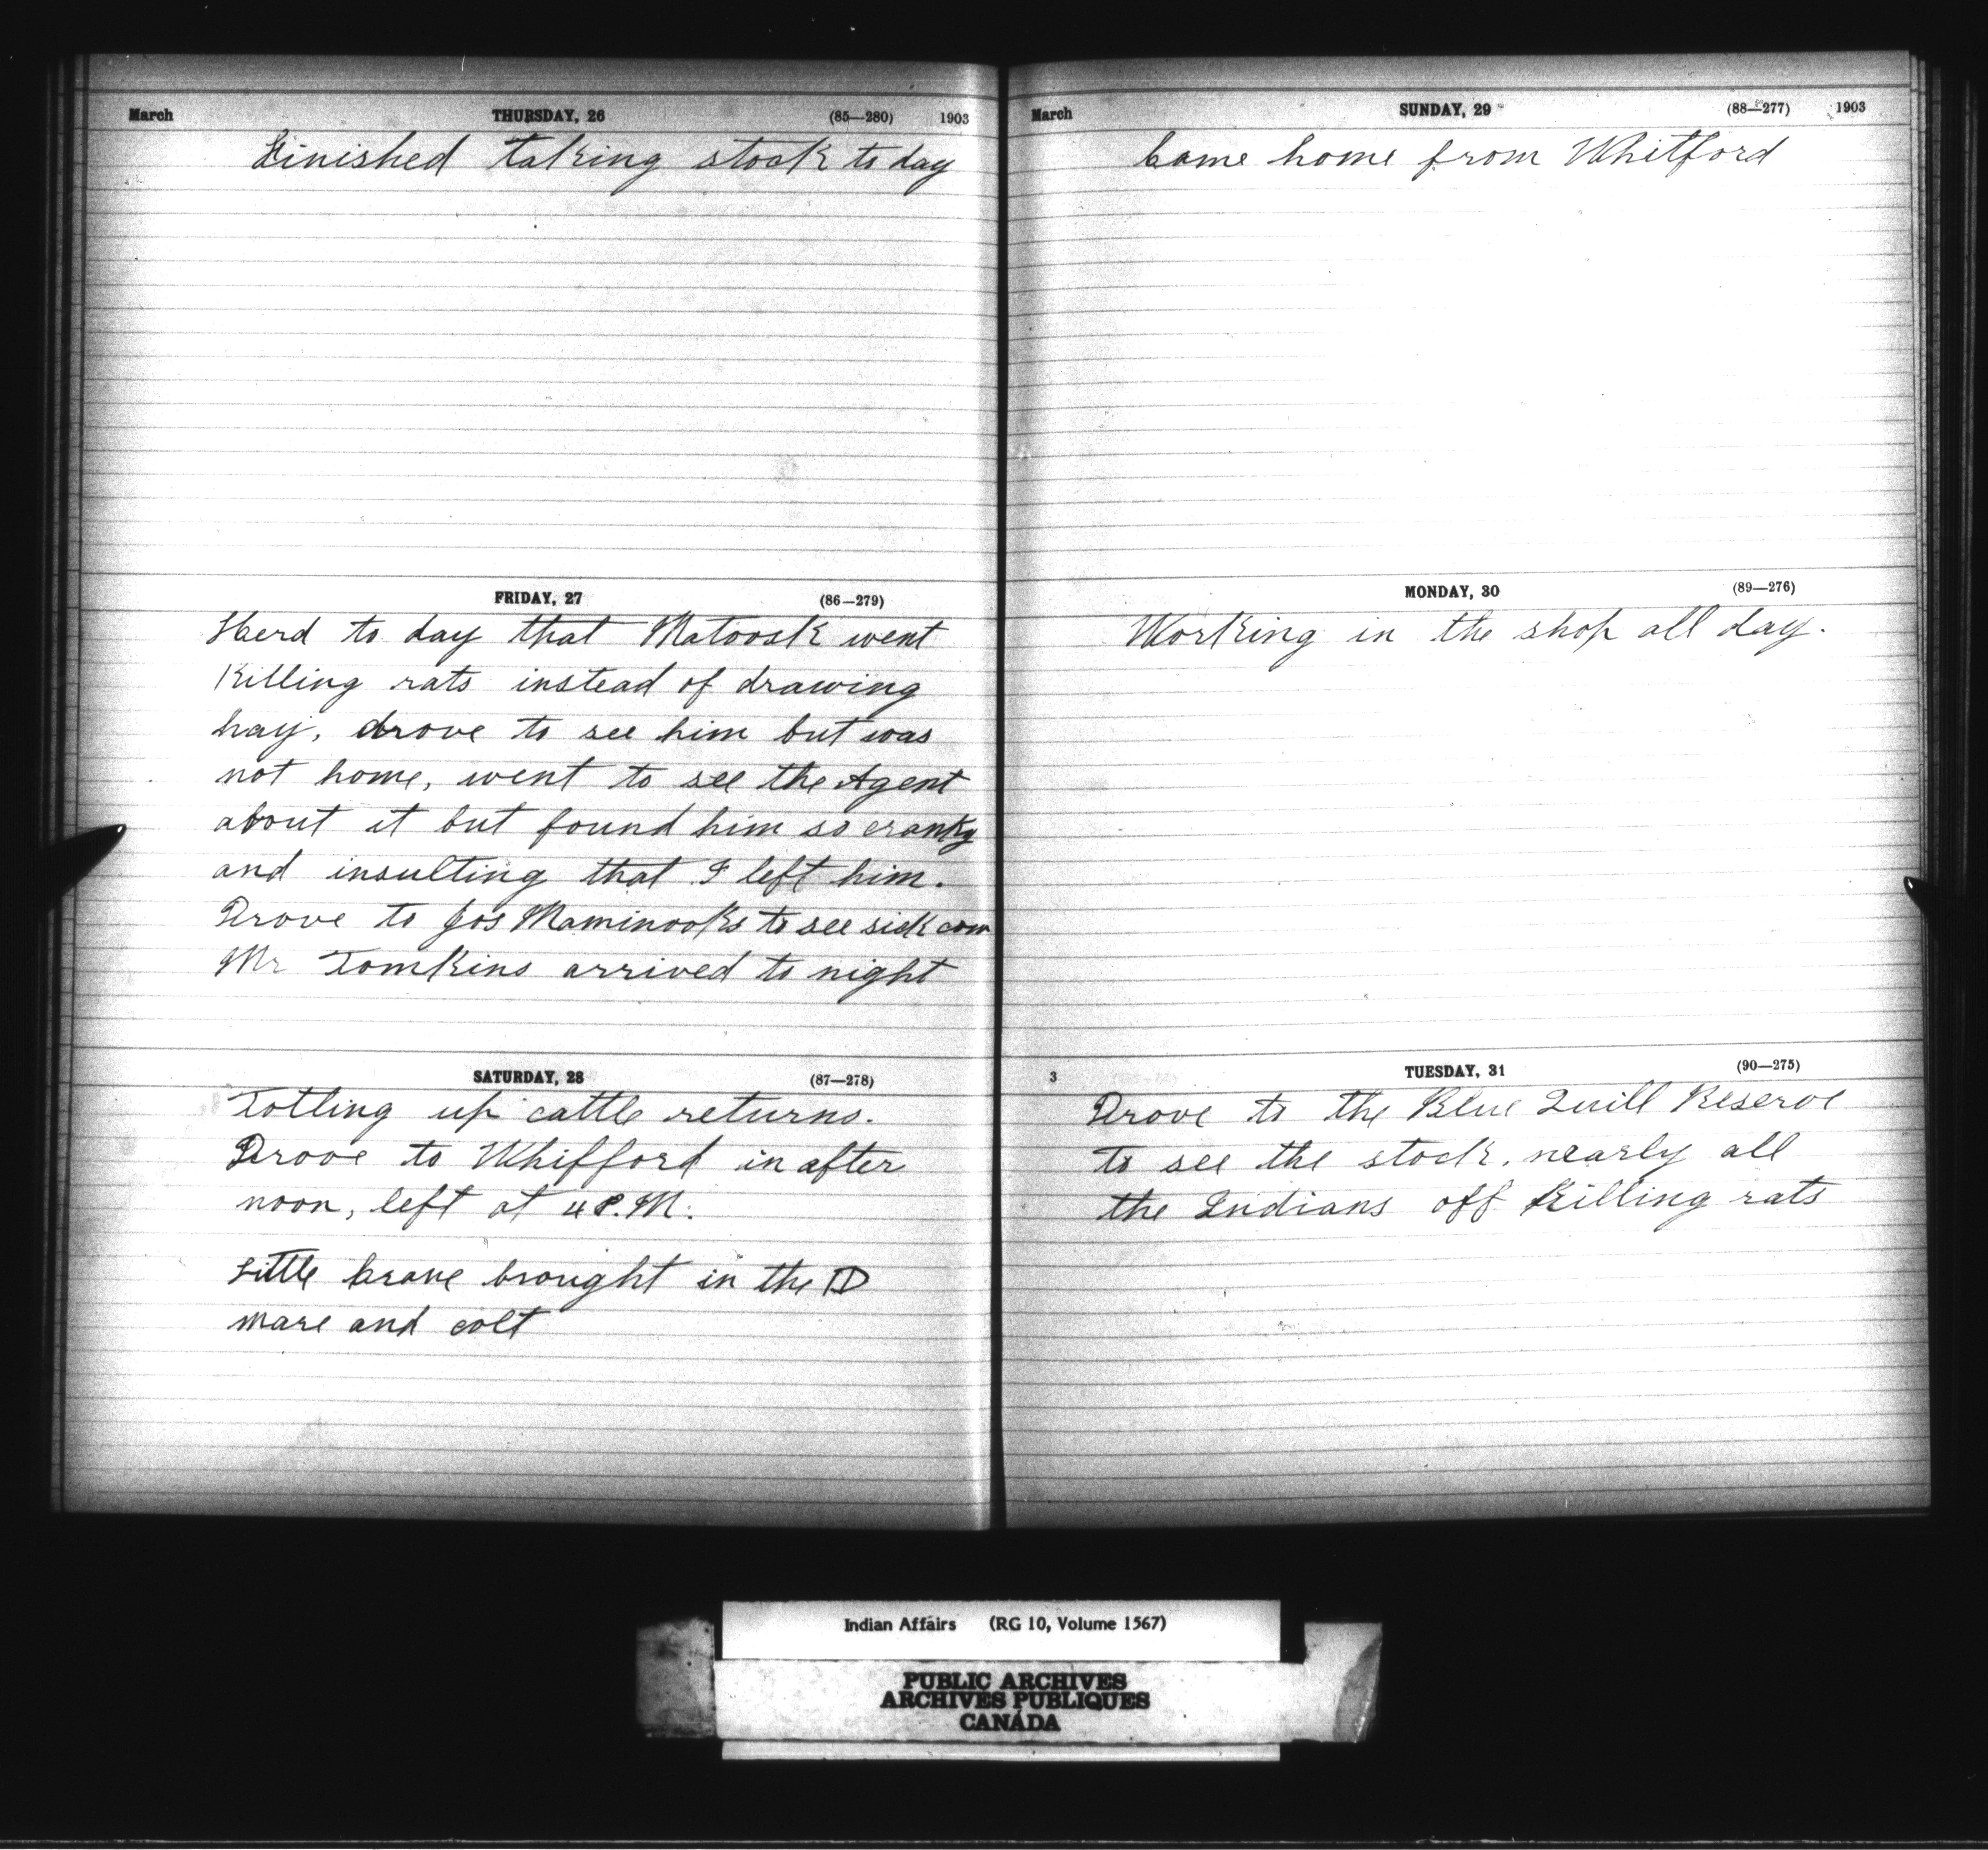 March THURSDAY, 26 (85—280) 1903
Finished taking stock to day
FRIDAY, 27 (86—279)
Herd to day that Matoosk went
Killing rats instead of drawing
hay, drove to see him but was
not home, went to see the Agent
about it but found him so cranky
and insulting that I left him.
Drove to Jos Maminooks to see sick cow
Mr Tomkins arrived to night
SATURDAY, 28 (87—278)
Totling up cattle returns.
Drove to Whifford in after
noon, left at 4 P.M.
Little brave brought in the ID
mare and colt
March SUNDAY, 29 (88—277) 1903
Came home from Whitford
MONDAY, 30 (89—276)
Working in the shop all day.
3 TUESDAY, 31 (90—275)
Drove to the Blue Quill Reserve
to see the stock, nearly all
the Indians off Killing rats
Indian Affairs (RG 10, Volume 1567)
PUBLIC ARCHIVES
ARCHIVES PUBLIQUES
CANADA